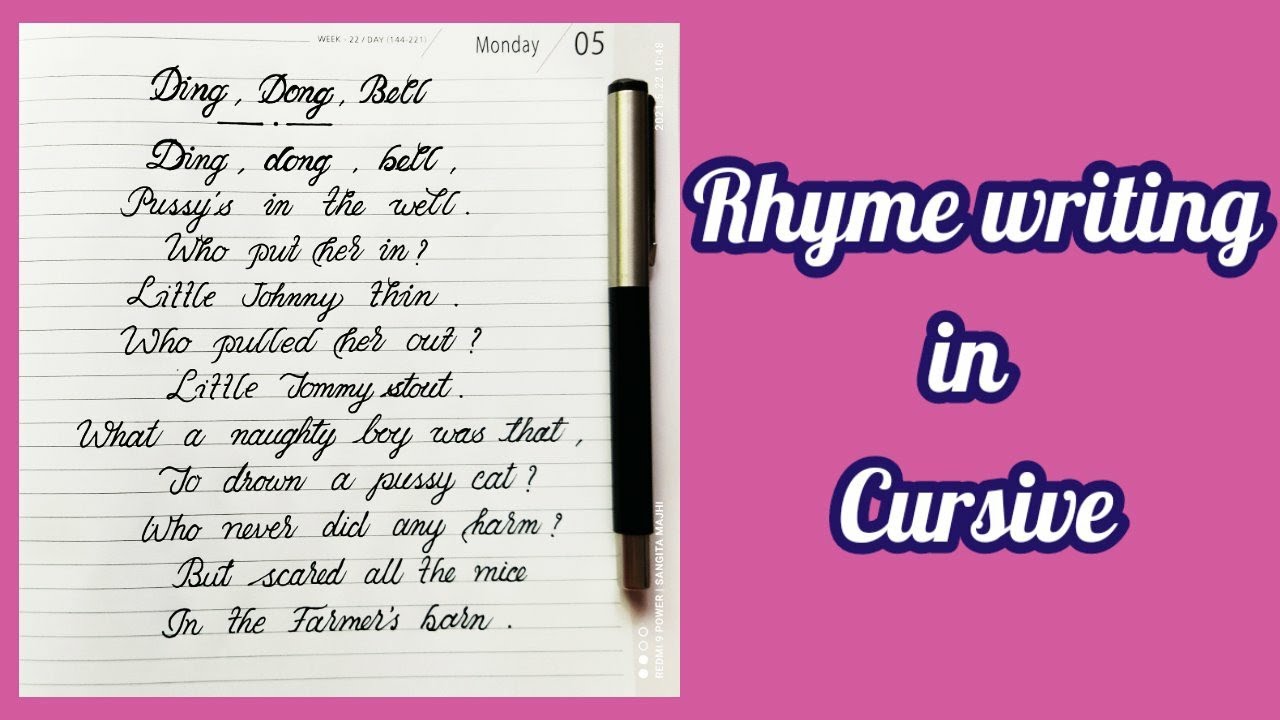 WEEK - 22 / DAY (144-221)
Monday 05
Ding, Dong, Bell
Ding, dong, bell,
Pussy's in the well.
Who put her in?
Little Johnny thin.
Who pulled her out?
Little Tommy stout.
What a naughty boy was that,
To drown a pussy cat?
Who never did any harm?
But scared all the mice
In the Farmer's barn.
2021.5.22 10:48
REDMI 9 POWER | SANGITA MAJHI
Rhyme writing
in
Cursive